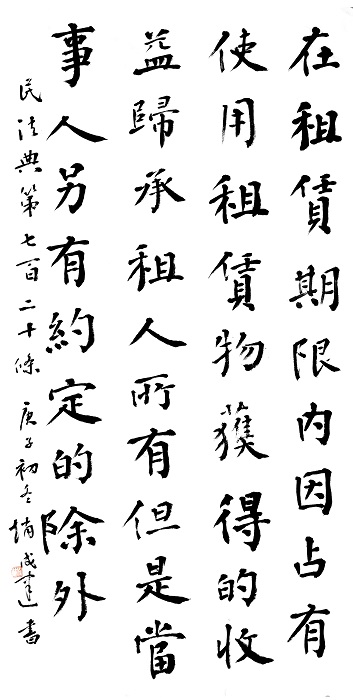 在租賃期限内因占有
使用租賃物獲得的收
益歸承租人所有但是當
事人另有約定的除外
民法典第七百二十條 庚子初冬 成建書